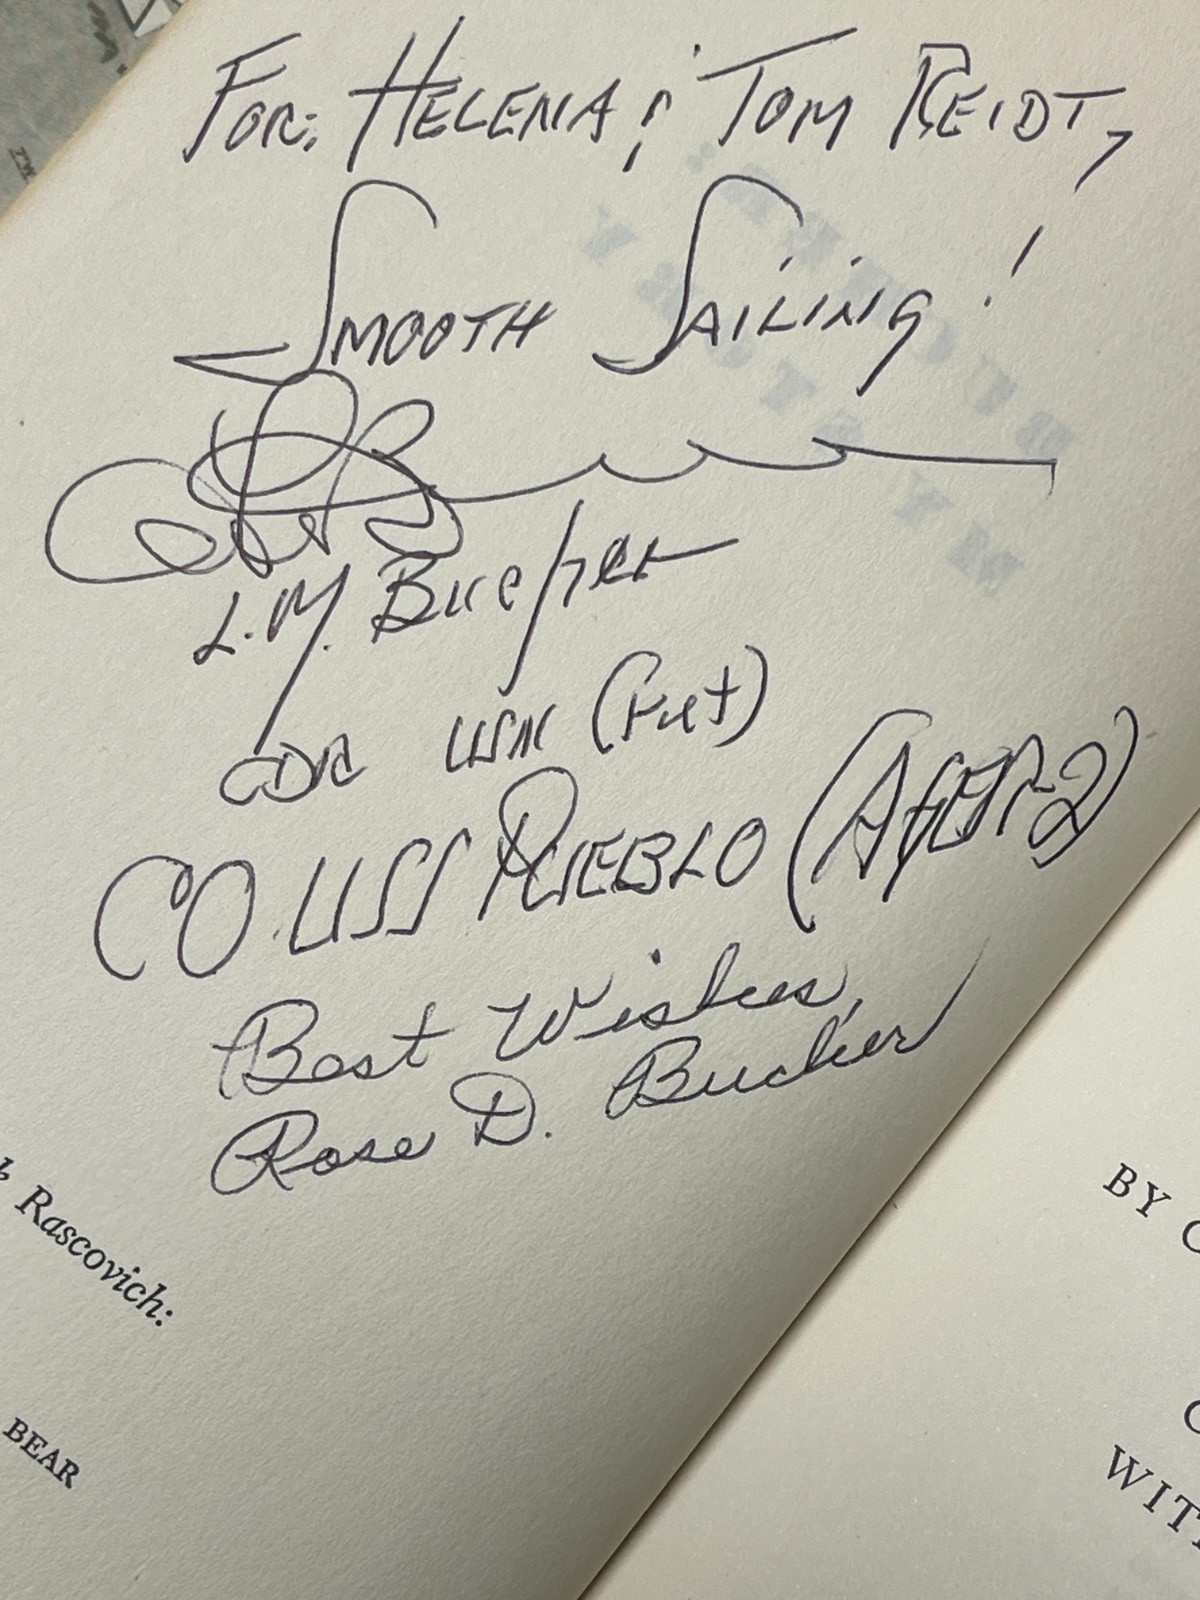 FOR: HELENA & TOM REIDT,
SMOOTH SAILING!
L.M. Bucher
CDR USN (Ret)
CO USS PUEBLO (AGER-2)
Best Wishes,
Rose D. Bucher
Rascovich:
BEAR
BY
WIT
BUCHER:
MY STORY